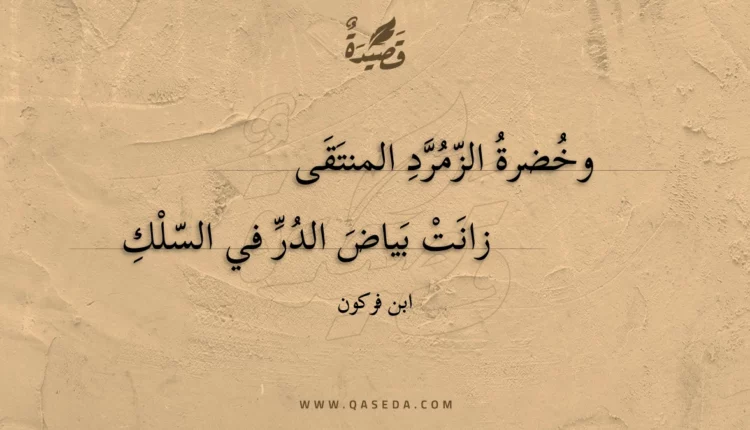 قَصِيْدَةٌ
وخُضرةُ الزّمُرَّدِ المنتَقَى
زانَتْ بَياضَ الدُرِّ في السّلْكِ
ابن فركون
WWW.QASEDA.COM